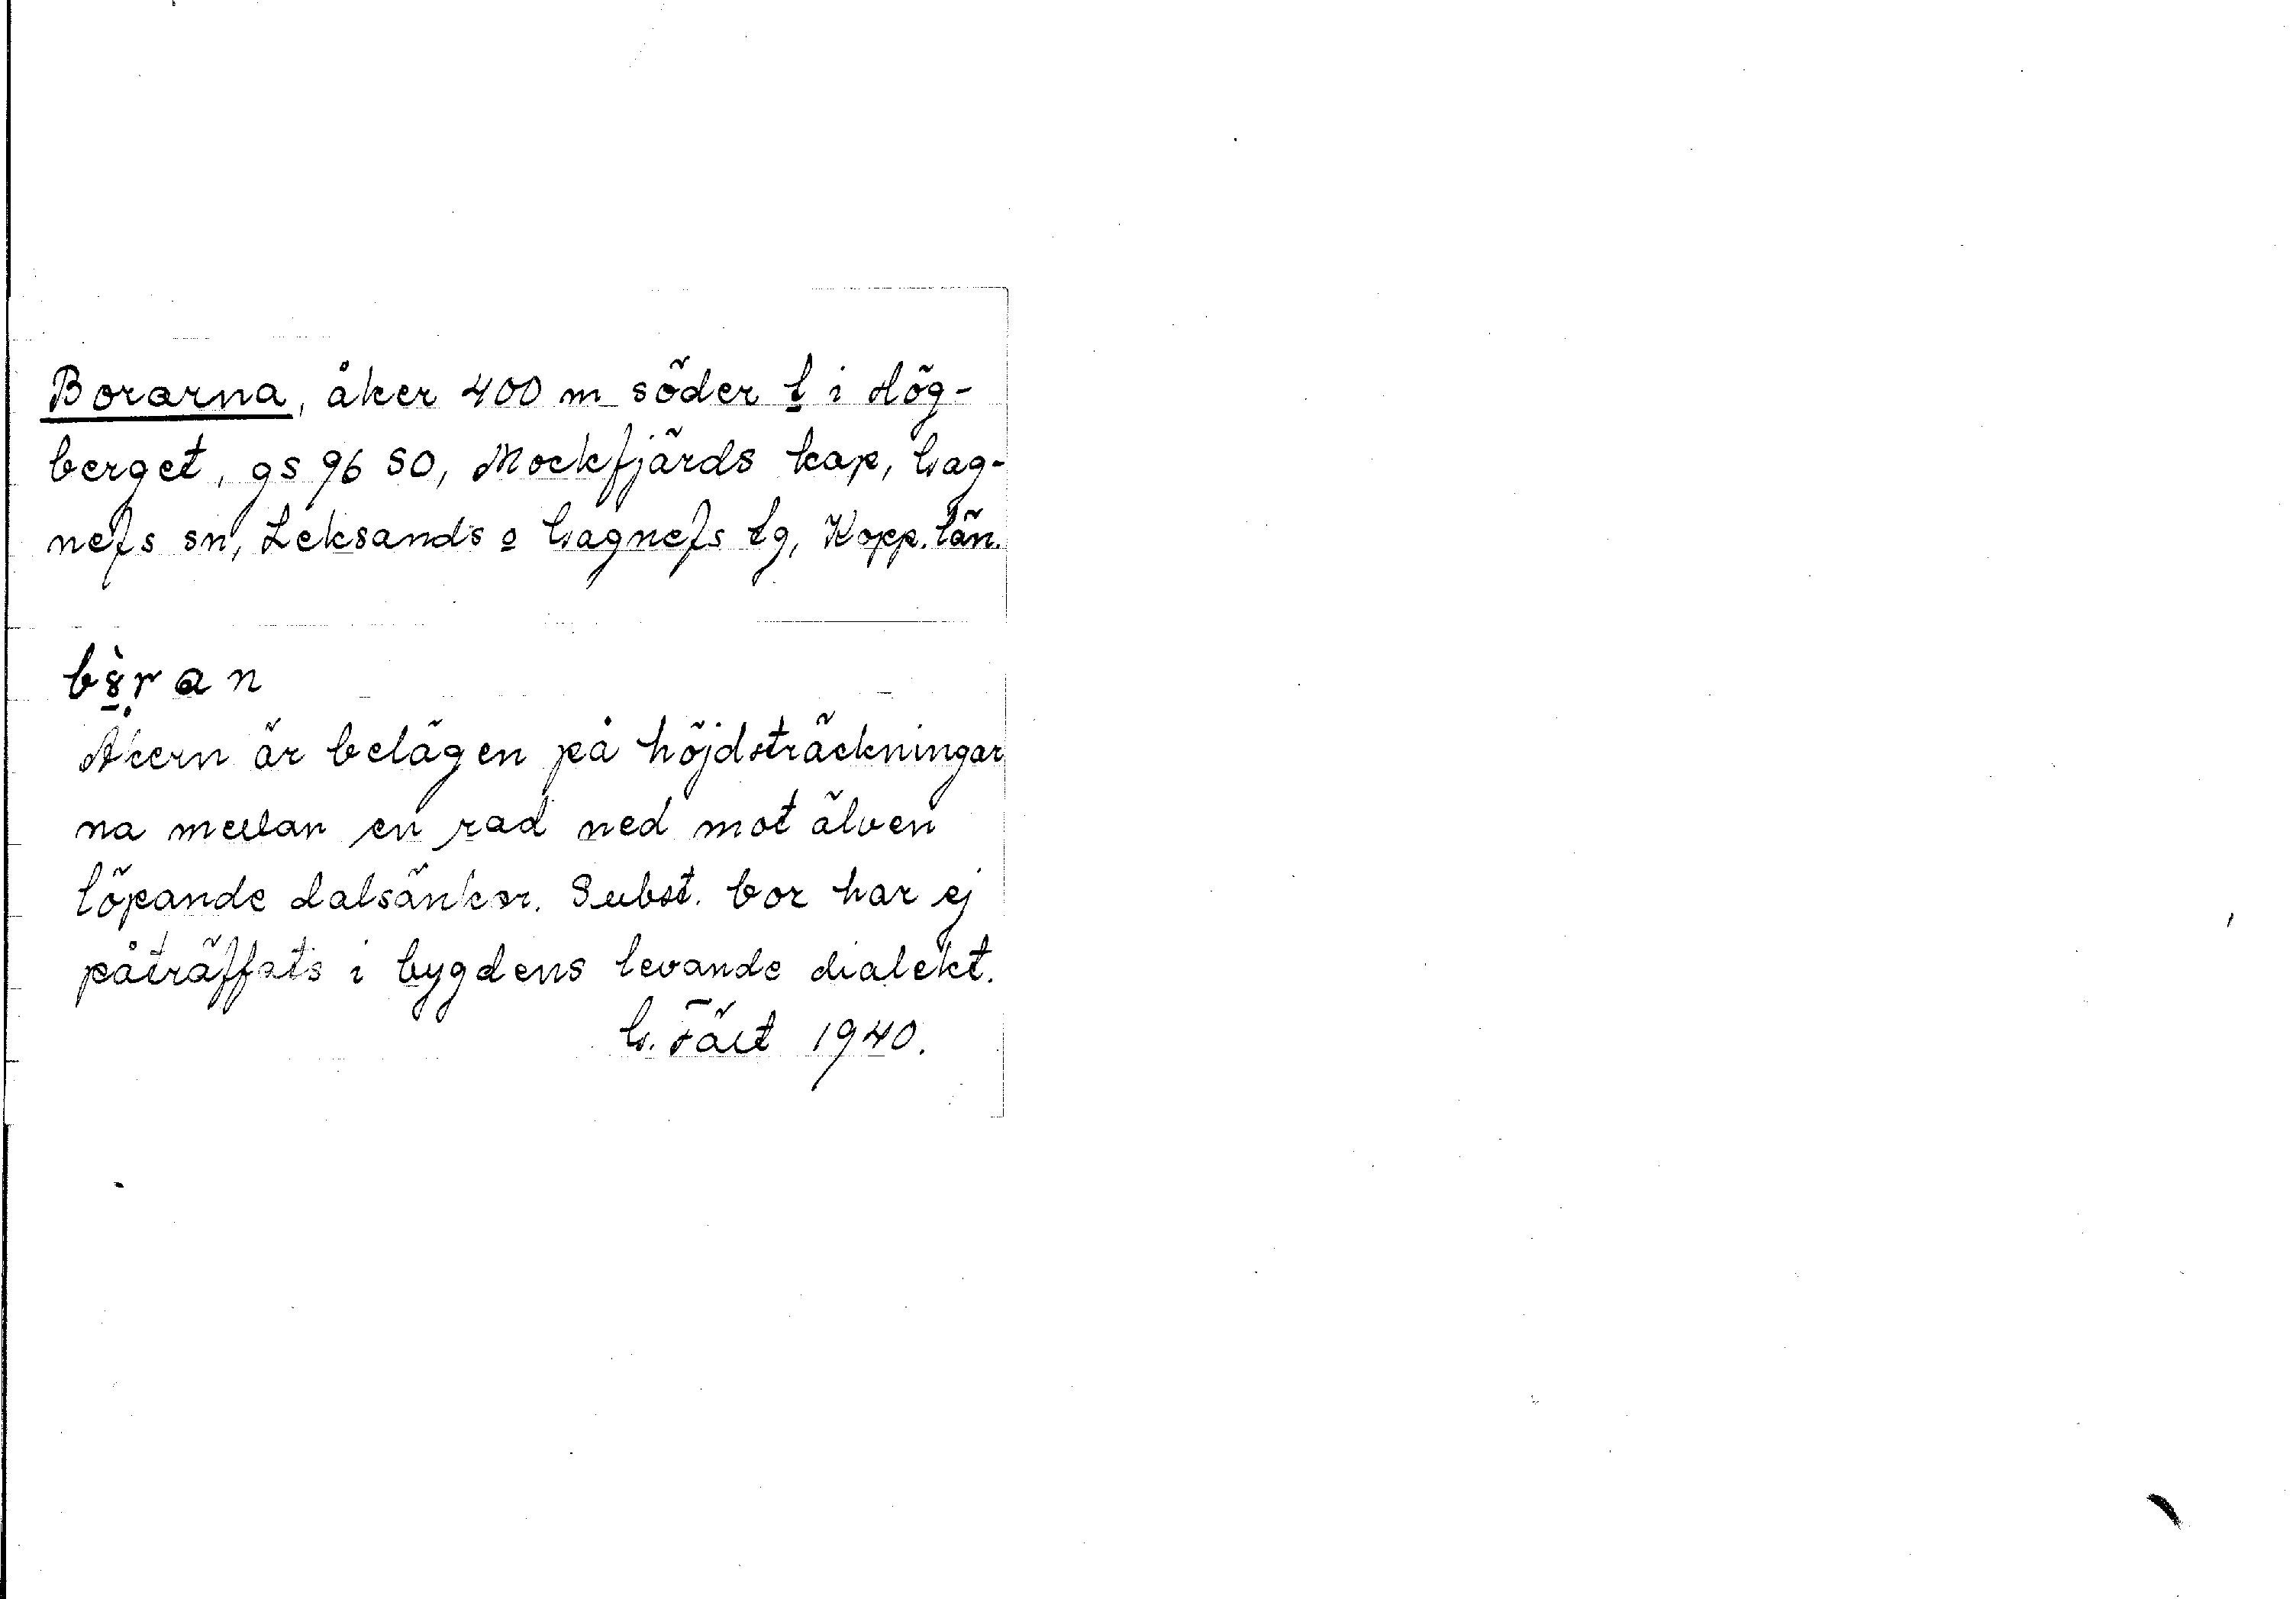 Borarna, åker 400 m söder t i Hög-
berget, gs 96 SO, Mockfjärds kap, Gag-
nefs sn, Leksands o Gagnefs tg, Kopp. län.
Åkern är belägen på höjdsträckningar
na mellan en rad ned mot älven
löpande dalsänkor. Subst. bor har ej
påträffats i bygdens levande dialekt.
G. Fält 1940.